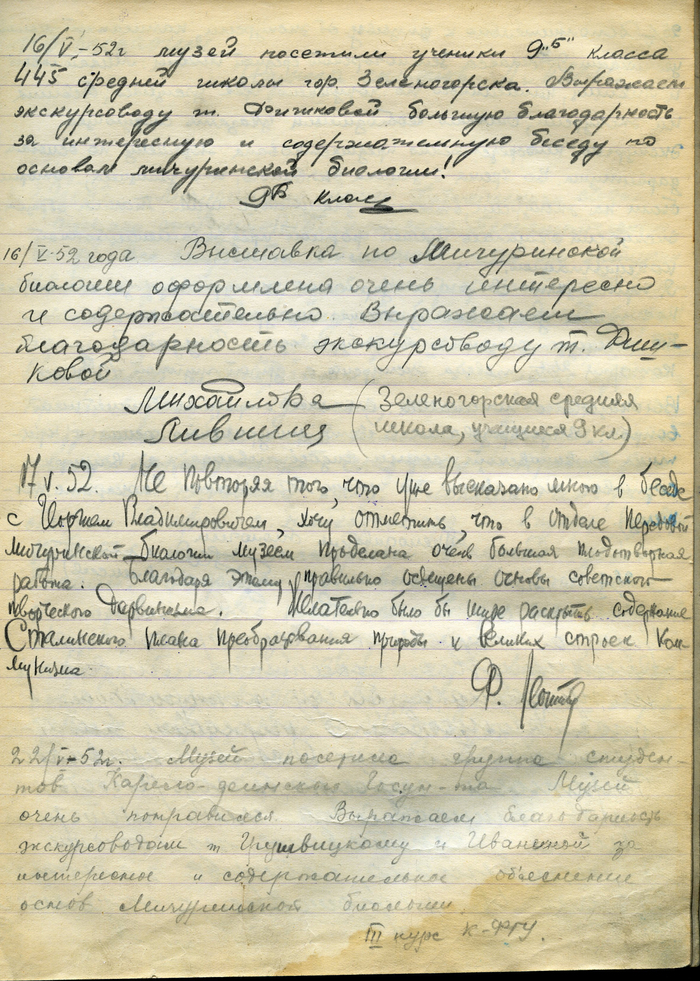 16/V-52г музей посетили ученики 9„б" класса
445 средней школы гор. Зеленогорска. Выражаем
экскурсоводу т. большую благодарность
за интересную и содержательную беседу по
основам мичуринской биологии!
9В класс
16/V-52 года Выставка по Мичуринской
биологии оформлена очень интересно
и содержательно. Выражаем
благодарность экскурсоводу т.
ковой
Михайлова (Зеленогорская средняя
Лившиц школа, учащиеся 9 кл.)
17 V. 52. Не повторяя того, что уже высказано мною в беседе
с Владимировичем, хочу отметить, что в отделе передовой
мичуринской биологии музеем проделана очень большая плодотворная
работа. Благодаря этому правильно освещены основы советского
творческого Дарвинизма. Желательно было бы шире раскрыть содержание
Сталинского плана преобразования природы и Великих строек Ком-
мунизма.
Ф.
22/V-52г. Музей посетила группа студен-
тов Карело-финского Госун-та Музей
очень понравился. Выражаем благодарность
экскурсоводам т и Ивановой за
интересное и содержательное объяснение
основ Мичуринской биологии
III курс К-ФГУ.